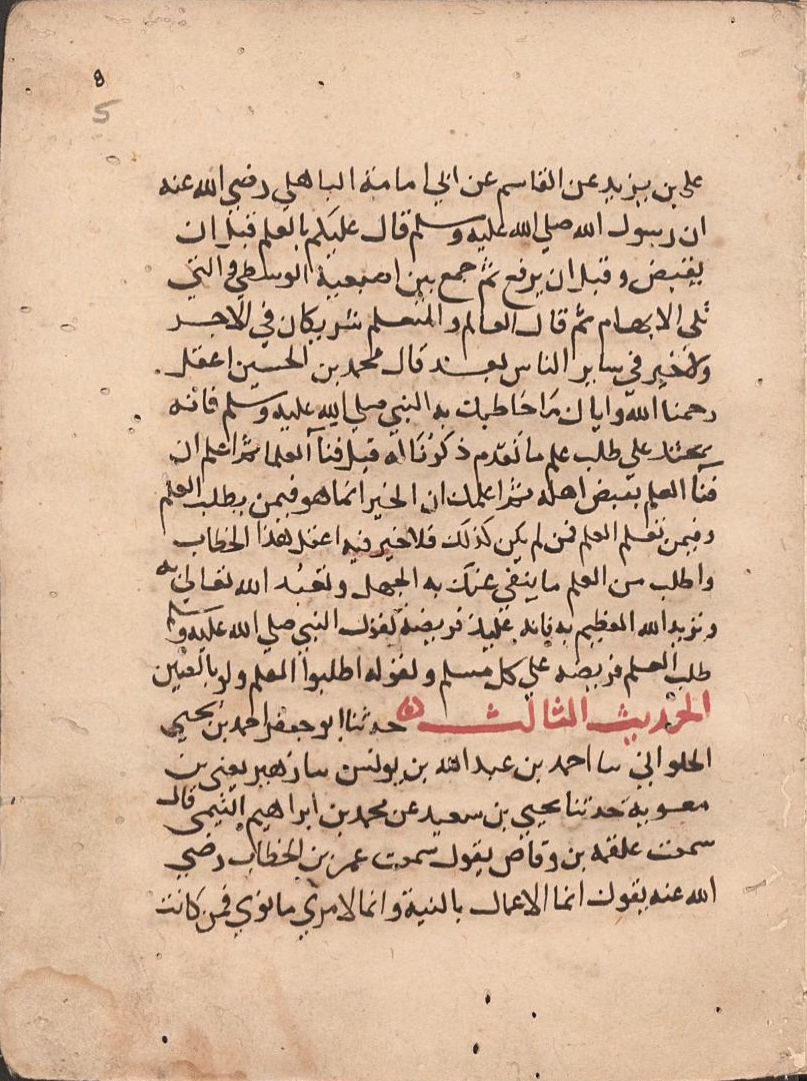 8
5
علي بن يزيد عن القاسم عن ابي امامة الباهلي رضي الله عنه
ان رسول الله صلي الله عليه وسلم قال عليكم بالعلم قبل ان
يقبض وقبل ان يرفع ثم جمع بين اصبعيه الوسطي والتي
تلي الابهام ثم قال العالم والمتعلم شريكان في الاجر
ولا خير في ساير الناس بعد قال محمد بن الحسين اعقل
رحمنا الله واياك ما خاطبك به النبي صلي الله عليه وسلم فانه
يحثك علي طلب علم ما تقدم ذكرنا له قبل فنآ العلما ثم اعلم ان
فنآ العلم بقبض اهله ثم اعلمك ان الخير انما هو فيمن يطلب العلم
وفيمن تعلم العلم فمن لم يكن كذلك فلا خير فيه اعقل هذا الخطاب
واطلب من العلم ما ينفي عنك به الجهل وتعبد الله تعالي به
وتريد الله العظيم به فانه عليك فريضة لقول النبي صلي الله عليه وسلم
طلب العلم فريضه علي كل مسلم ولقوله اطلبوا العلم ولو بالصين
الحديث الثالث حدثنا ابو جعفر احمد بن يحيي
الحلواني ثنا احمد بن عبد الله بن يونس ثنا زهير يعني بن
معوية حدثنا يحيي بن سعيد عن محمد بن ابراهيم التيمي قال
سمعت علقمه بن وقاص يقول سمعت عمر بن الخطاب رضي
الله عنه يقول انما الاعمال بالنية وانما لامري ما نوي فمن كانت